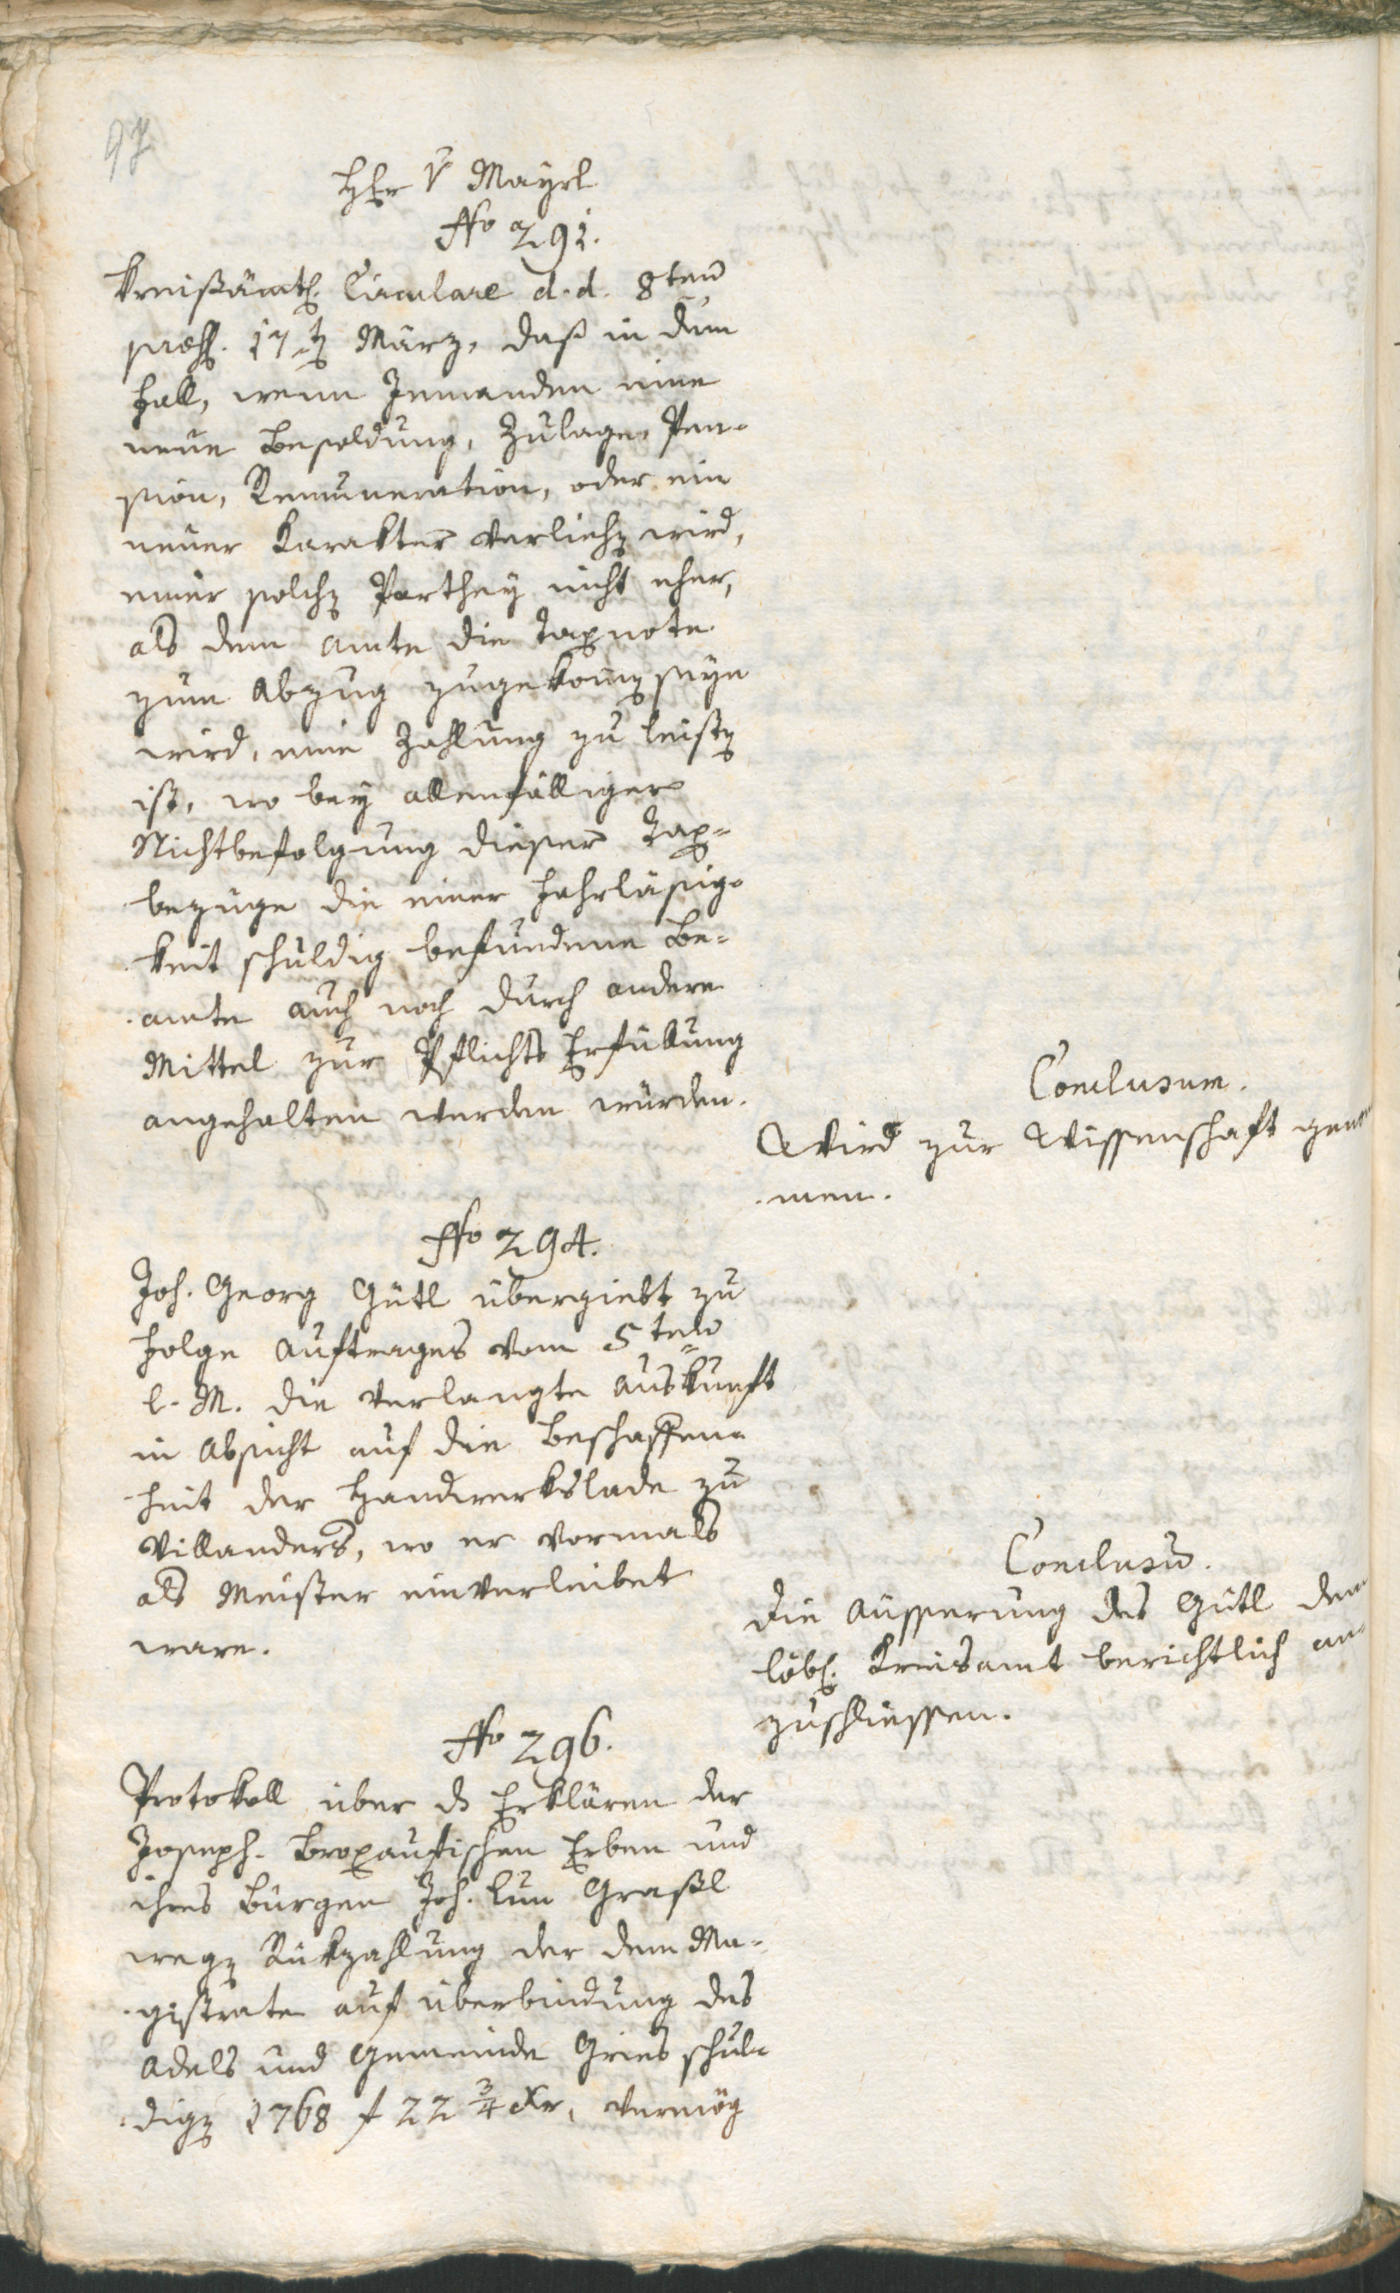 97
Hr v Mayrl
No 291.
Kreißämtl. Circulare d. d. 8ten
præs. 17t März, daß in dem
Fall, wenn Jemanden eine
neue Besoldung, Zulage, Pen-
sion, Remuneration, oder ein
neuer Karakter verliehen wird,
einer solchen Parthey nicht eher,
als dem Amte die Taxnote
zum Abzug zugekomen seyn
wird, eine Zahlung zu leisten
ist, wo bey allenfälliger
Nichtbefolgung dieser Tax-
bezüge die einer Fahrläsig-
keit schuldig befundene Be-
amte auch noch durch andere
Mittel zur Pflichts Erfüllung
angehalten werden würden.
Conclusum.
Wird zur Wissenschaft genom
men.
No 294.
Joh. Georg Gütl übergiebt zu
Folge Auftrages vom 5ten
l. M. die verlangte Auskunft
in Absicht auf die Beschaffen-
heit der Handwerkslade zu
Villanders, wo er vormals
als Meister einverleibet
ware.
Conclusum.
Die Äusserung des Gütl dem
löbl. Kreisamt berichtlich an-
zuschliessen.
No 296.
Protokoll über ds Erklären der
Joseph. Broxaufischen Erben und
ihres Bürgen Joh. Graßl
wegen Rükzahlung der dem Ma-
gistrate auf überbindung des
Adels und Gemeinde Gries schul-
digen 1768 f 22 3/4 xr, vermög